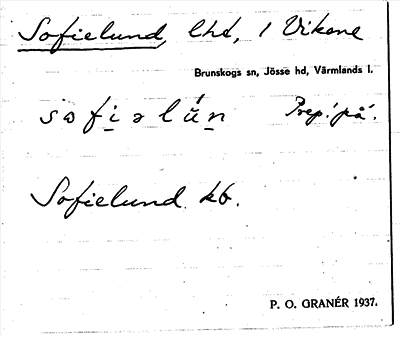 Sofielund, lht, 1 Vikene
Brunskogs sn, Jösse hd, Värmlands l.
sɷfi̠əlú̆n̠ Prep. på.
Sofielund kb.
P. O. GRANÉR 1937.